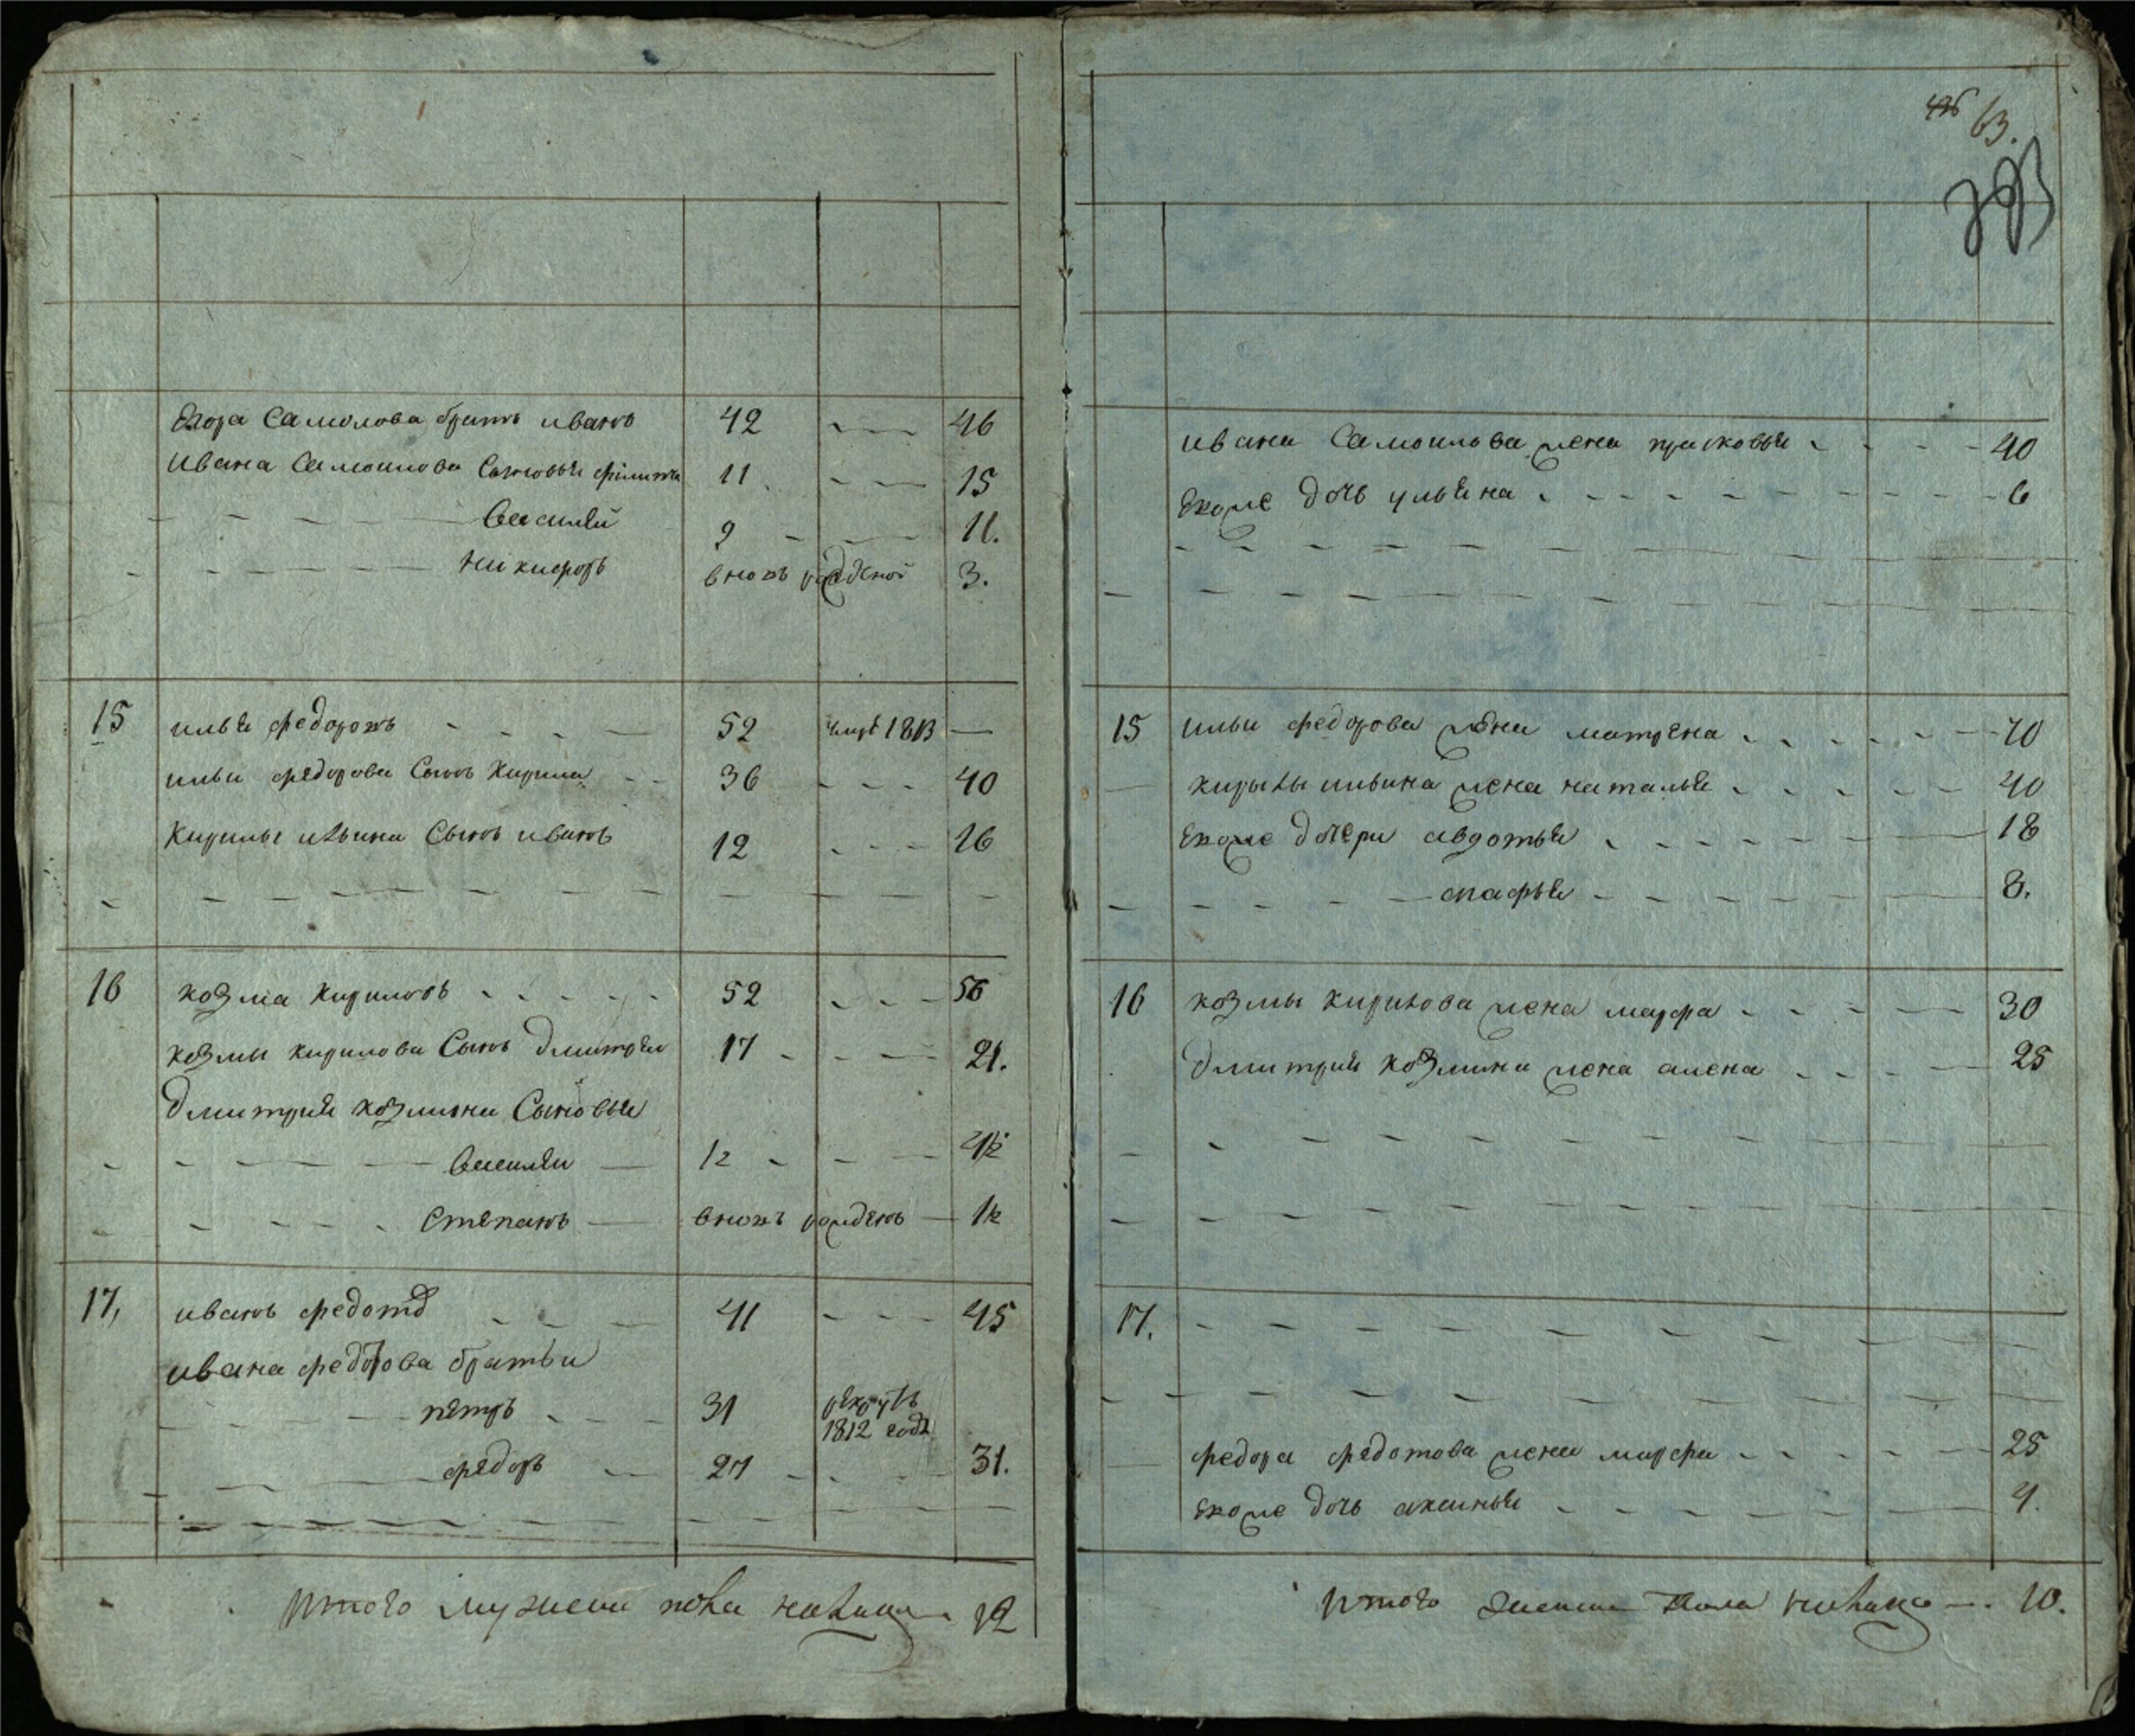 Егора Самолова братъ иванъ 42 46
Ивана Самоилова Сыновья филипъ 11 15
Василѣй 9 11.
Никифоръ вновь рожденой 3.
15 илья федоровъ 52 умре 1813
ильи федорова Сынъ Кирила 36 40
Кирилы ильина Сынъ иванъ 12 16
16 козма Кириловъ 52 56
козмы кирилова Сынъ Дмитрѣи 17 21.
Дмитрия козмина Сыновья
Василѣи 1/2
Степанъ вновь рожденъ 1/2
17, иванъ федотов 41 45
ивана федотова братьи
петръ 31 рекрутъ 1812 года
федоръ 27 31.
Итого мужеска пола налицо 12
63.
ивана Самоилова жена прасковья 40
Екоже дочь ульяна 6
15 ильи федорова жена матрена 70
кирылы ильина жена наталья 40
Екоже дочери авдотья 18
апафья 8.
16 козмы кирилова жена марфа 30
Дмитрия козмина жена алена 25
17.
федора федотова жена марфа 25
Екоже дочь аксинья 4.
Итого женска пола налицо 10.